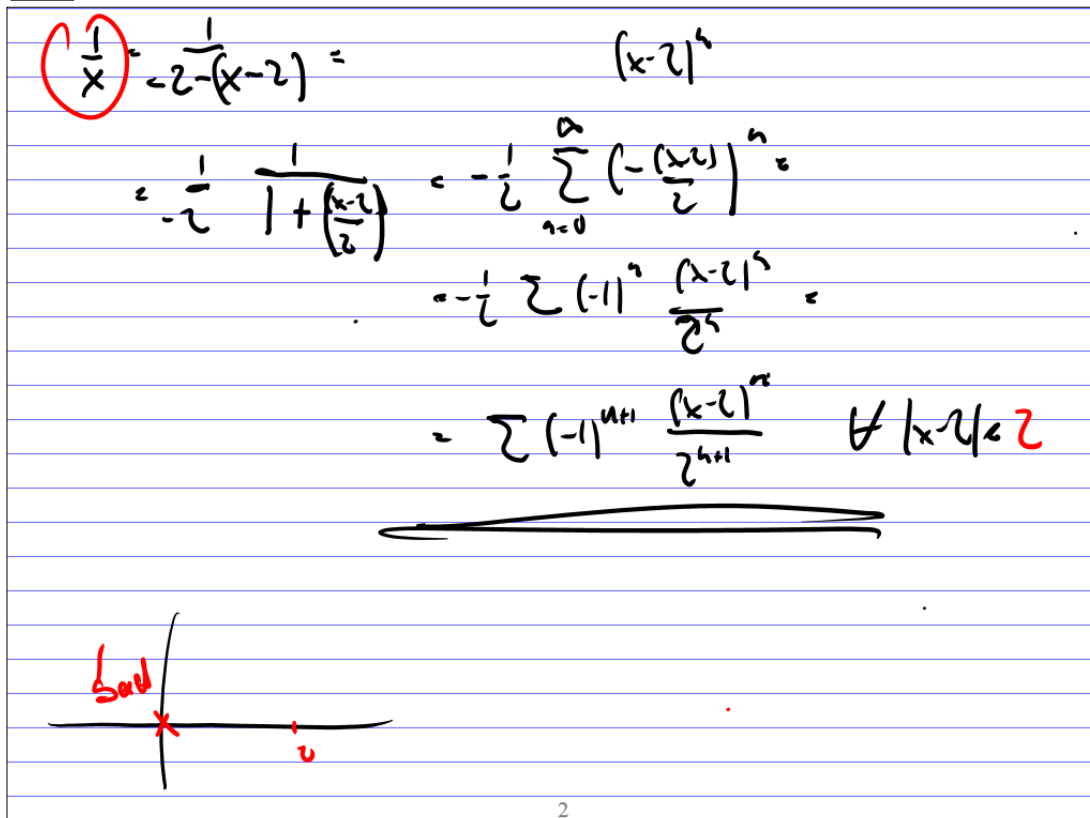 1/x = 1/(-2-(x-2)) = (x-2)^n
= 1/(-2) 1/(1+((x-2)/2)) = -1/2 ∑_{n=0}^{∞} (-(x-2)/2)^n =
= -1/2 ∑ (-1)^n (x-2)^n/2^n =
= ∑ (-1)^{n+1} (x-2)^n/2^{n+1} ∀ |x-2| < 2
bad
2
2